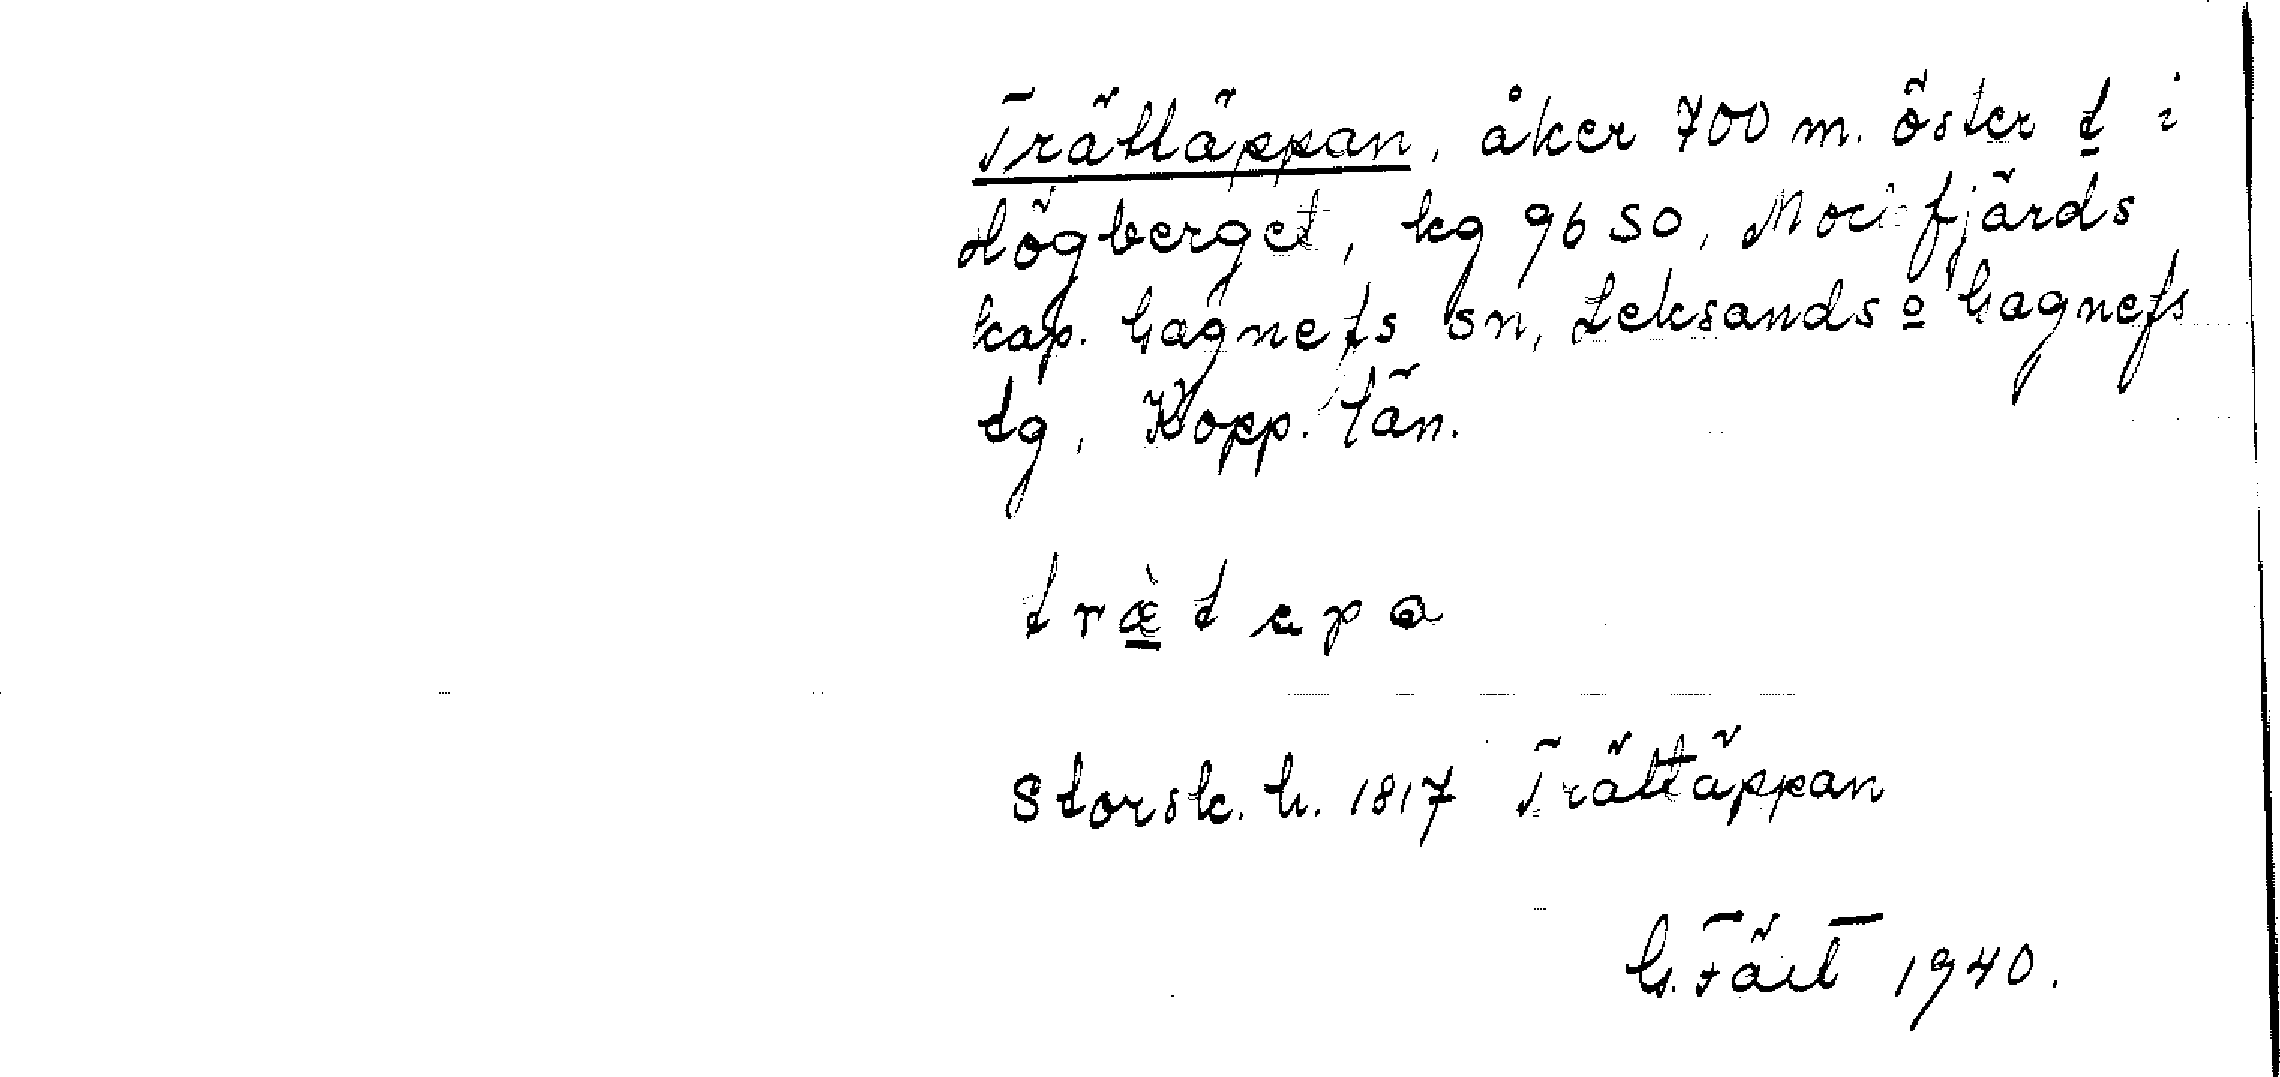 Trättäppan, åker 700 m. öster t i
Högberget, kg 9650, Mockfjärds
kap. Gagnefs sn, Leksands o Gagnefs
tg, Kopp. län.
træ̀tepa
Storsk. h. 1817 Trättäppan
G. Fält 1940.